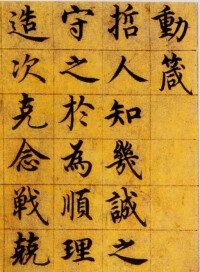 動箴
哲人知幾誠之
守之於為順理
造次克念戦兢